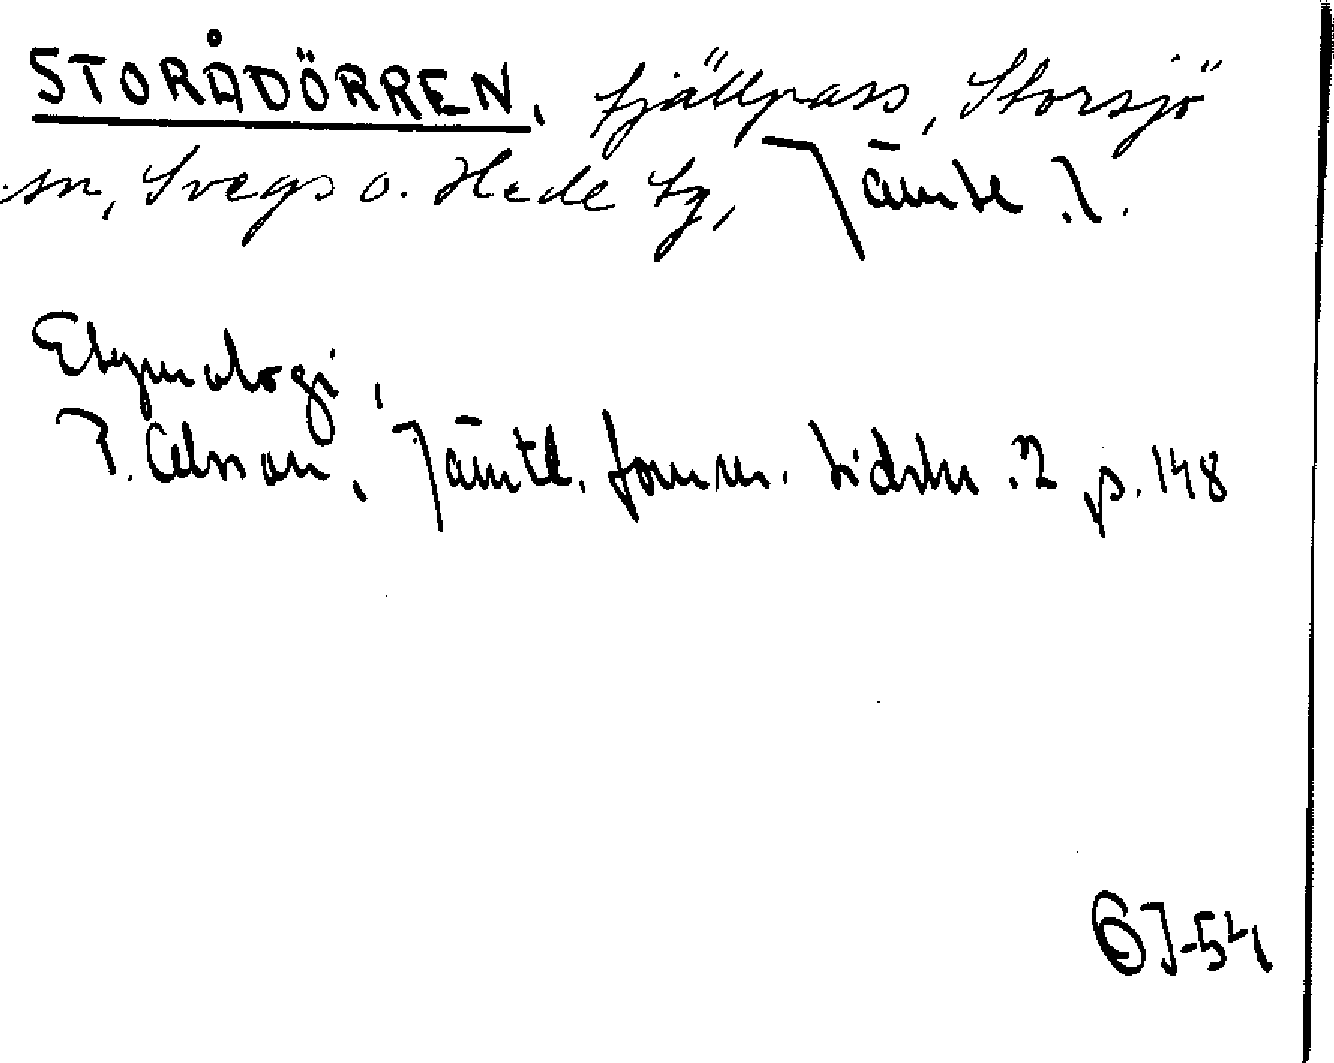 STORÅDÖRREN, fjällpass, Storsjö
sn, Svegs o. Hede tg, Jämtl. l.
Etymologi,
P. Olsson, Jämtl. fornm. tidskr. 2 p. 148